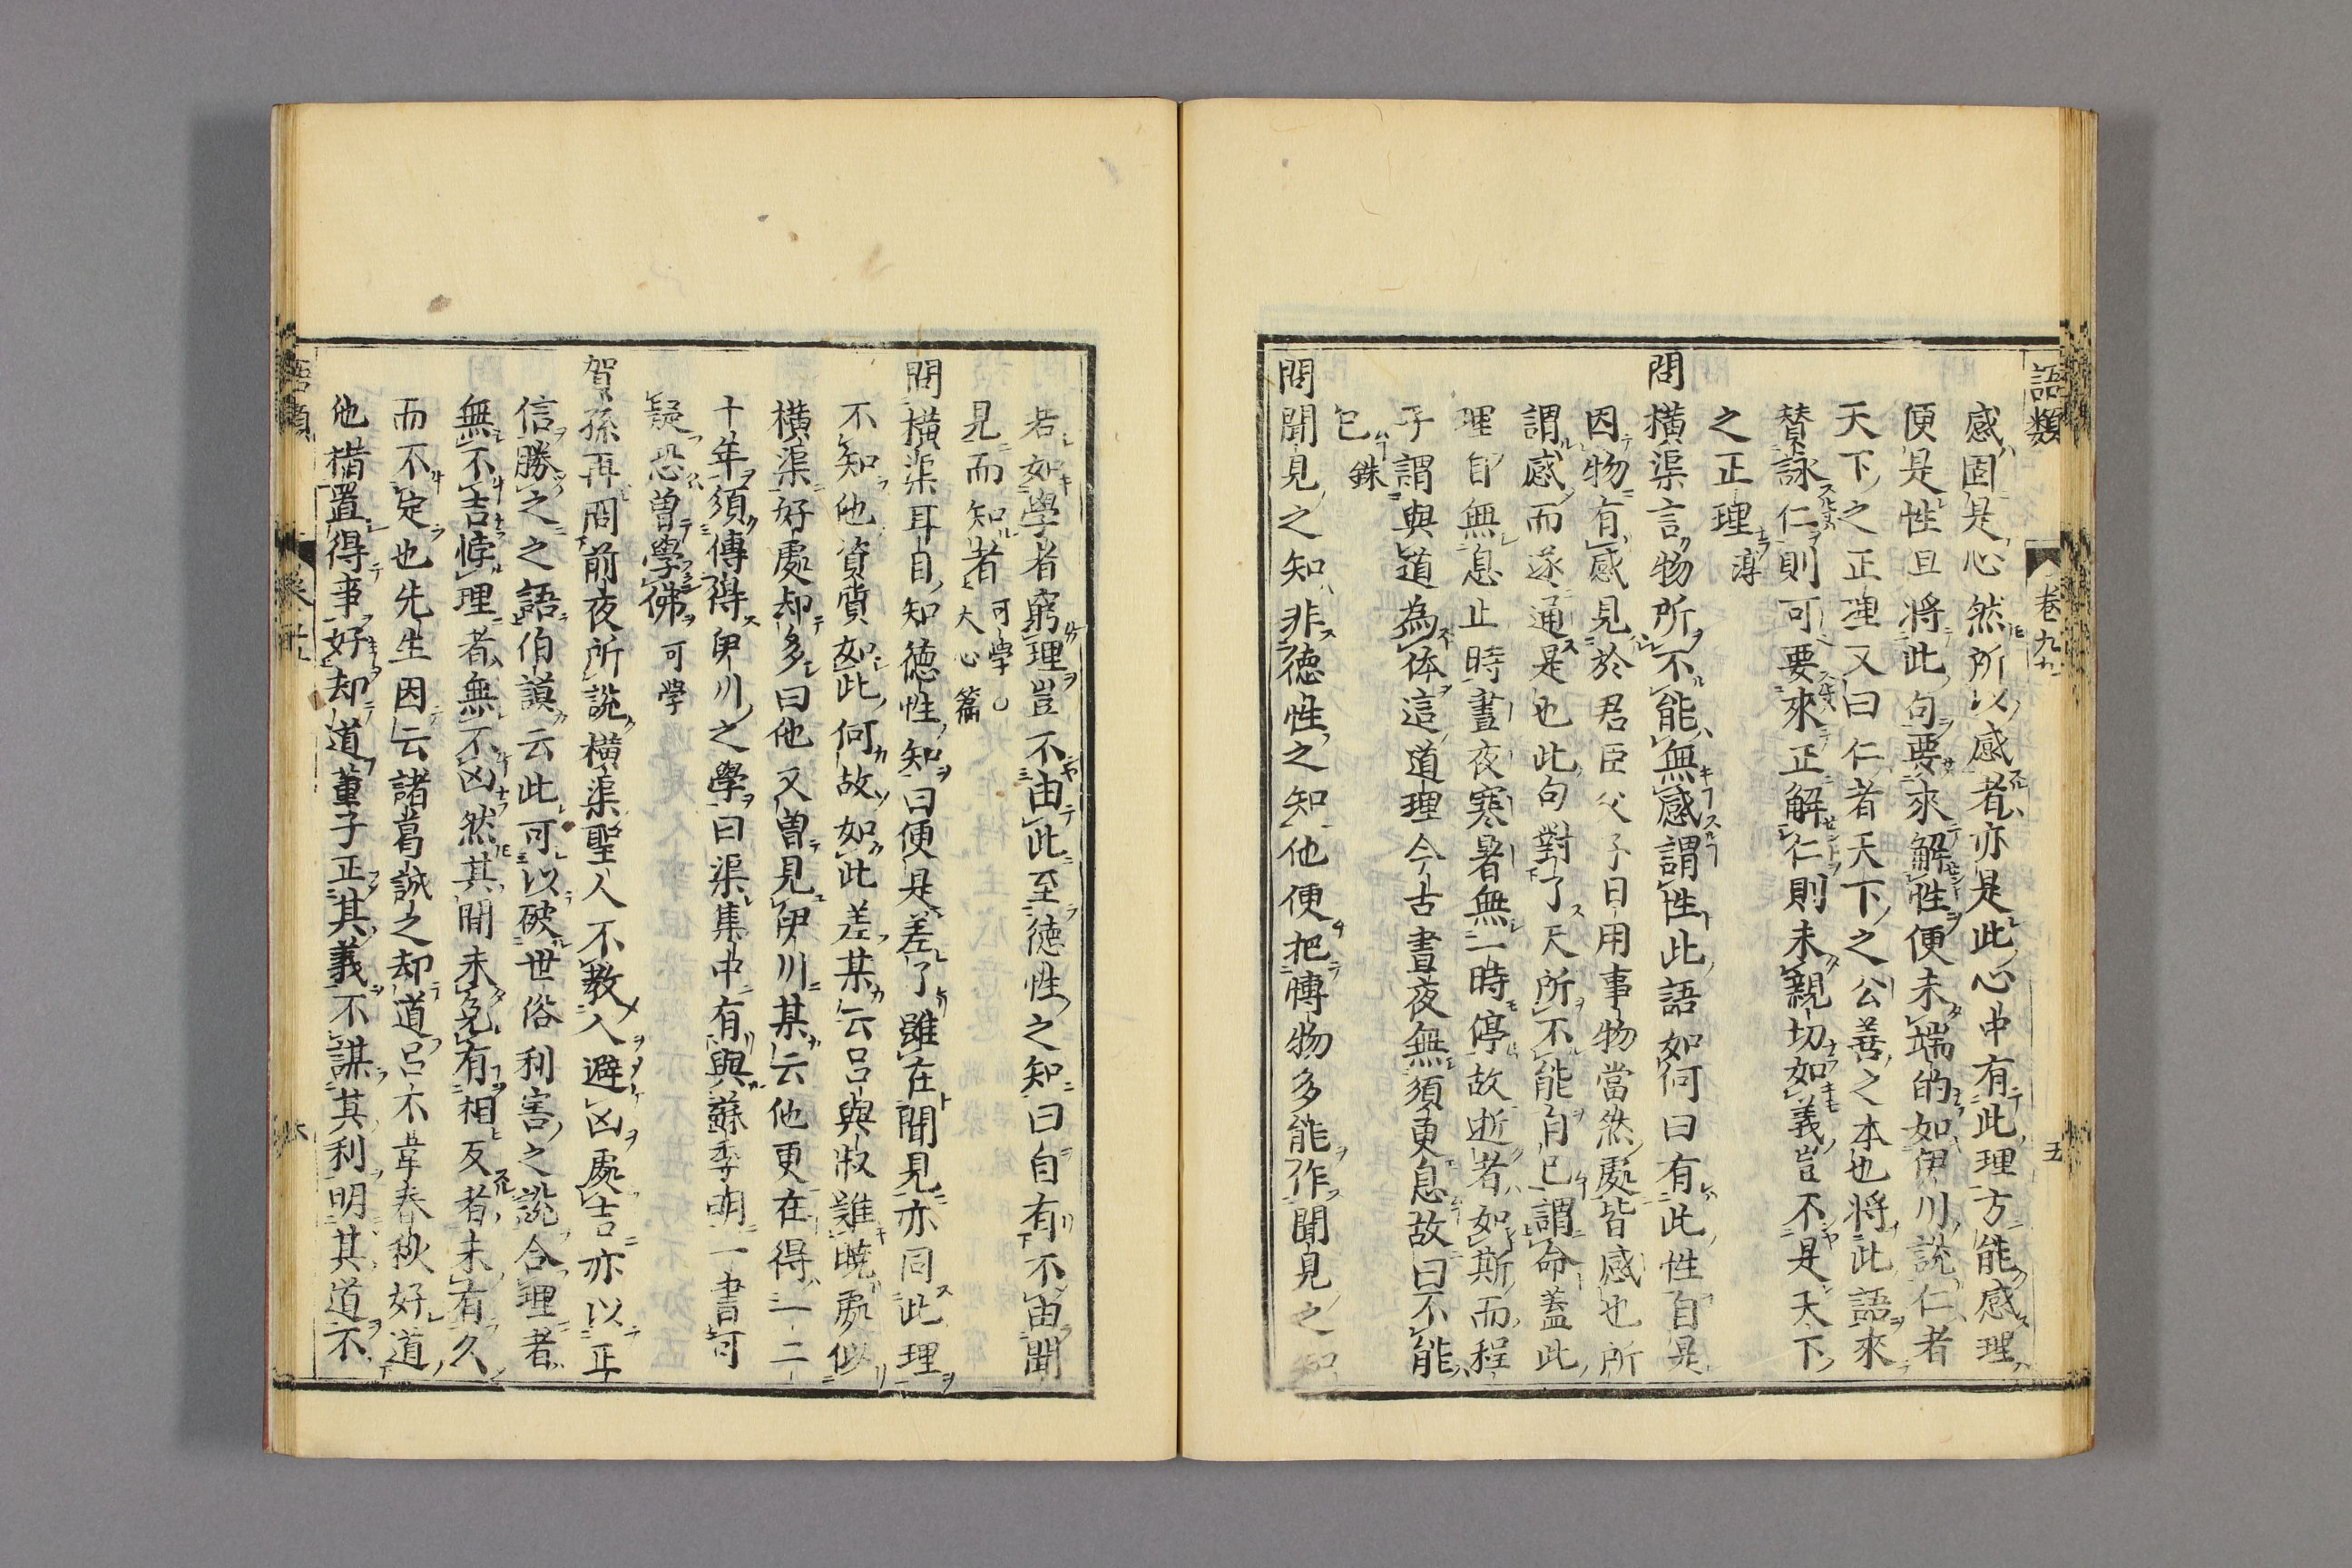 語類
卷九十
五
感固是心然所以感者亦是此心中有此理方能感理
便是性且將此句要來解性便未端的如伊川說仁者
天下之正理又曰仁者天下之公善之本也將此語來
賛詠仁則可要來正解仁則未親切如義豈不是天下
之正理淳
問橫渠言物所不能無感謂性此語如何曰有此性自是
因物有感見於君臣父子日用事物當然處皆感也所
謂感而遂通是也此句對了天所不能自已謂命蓋此
理自無息止時晝夜寒暑無一時停故逝者如斯而程
子謂與道為体這道理今古晝夜無須更息故曰不能
已銖
問聞見之知非德性之知他便把博物多能作聞見之知
若如學者窮理豈不由此至德性之知曰自有不由聞
見而知者可學○大心篇
問橫渠耳自知德性知曰便是差了雖在聞見亦同此理
不知他資質如此何故如此差某云呂與叔難曉處似
橫渠好處却多曰他又曽見伊川某云他更在得一二
十年須傳得伊川之學曰渠集中有與蘇季明一書可
疑恐曽學佛可學
賀孫再問前夜所說橫渠聖人不教人避凶處吉亦以正
信勝之之語伯謨云此可以破世俗利害之說合理者
無不吉悖理者無不凶然其間未免有相反者未有久
而不定也先生因云諸葛誠之却道呂不韋春秋好道
他措置得事好却道董子正其義不謀其利明其道不